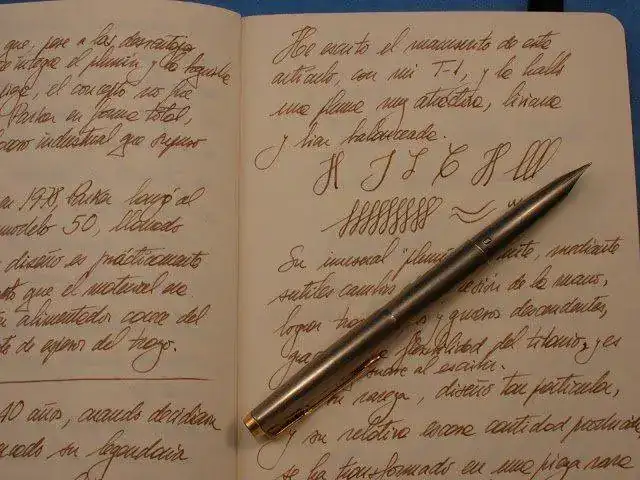 que, pese a las desventajas
e integra el plumín y la boquilla
pieza, el concepto no fue
Parker en forma total,
fracaso industrial que supuso
en 1978 Parker lanzó al
modelo 50, llamado
diseño es prácticamente
que el material es
alimentador carece del
de espesor del trazo.
40 años, cuando decidieron
su legendaria
He escrito el manuscrito de este
artículo, con mi T-1, y la hallo
una pluma muy atractiva, liviana
y bien balanceada.
H J L C H lll
Su inusual "plumín
mediante
sutiles cambios
de la mano,
lograr
y gruesos descendentes,
flexibilidad del titanio, y es
al escribir.
rareza, diseño tan particular,
y su relativa escasa cantidad producida
se ha transformado en una pieza rara